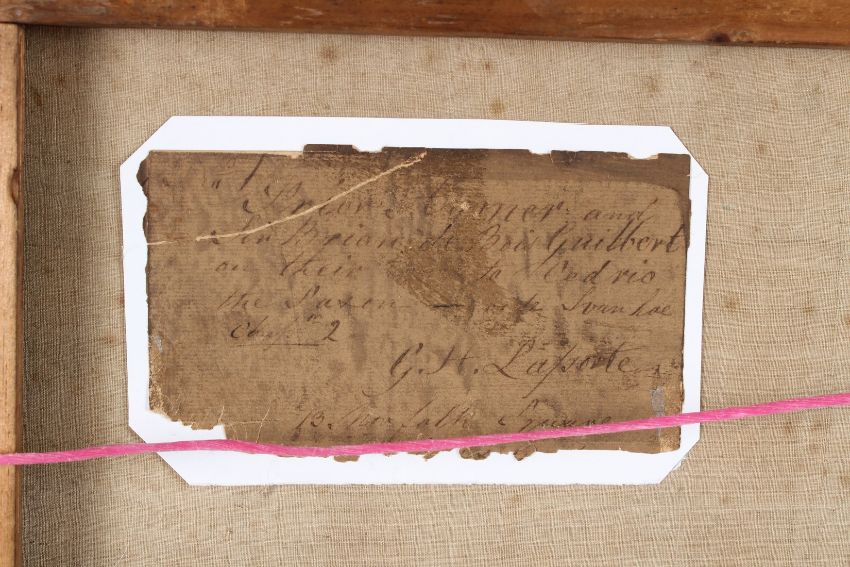 " Prior Aymer and
Sir Brian de Bois Guilbert
on their to Cedric
the Saxon Ivanhoe
Chapr 2
G. H. Laporte
13 Norfolk Square